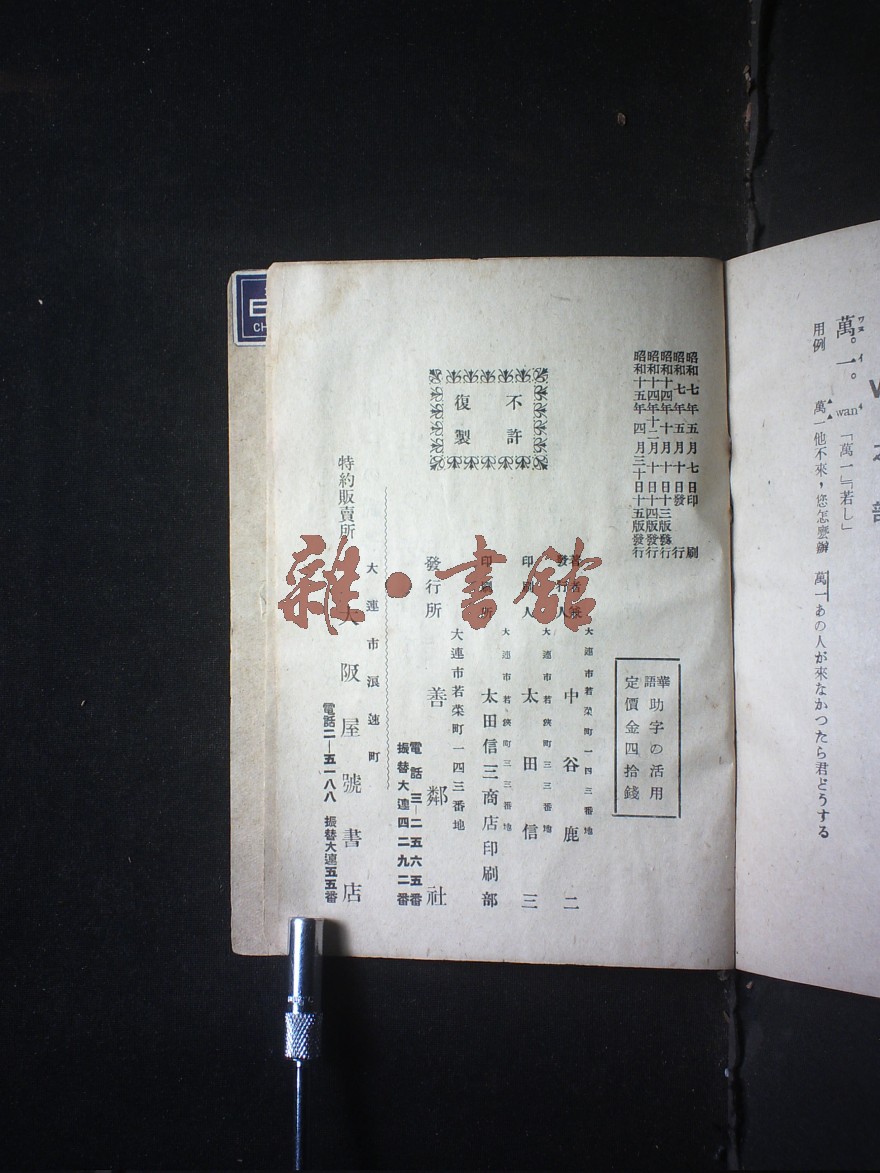 W之部
萬一。 wan⁴ 「萬一」「若し」
ワヌ イ
用例 萬一他不來，您怎麼辦 萬一あの人が来なかつたら君どうする
昭和七年五月七日印刷
昭和七年五月十日發行
昭和十四年十月十日十三版發行
昭和十四年十二月十日十四版發行
昭和十五年四月三十日十五版發行
華語助字の活用
定價金四拾錢
不許復製
大連市若菜町一四三番地
著者兼發行人 中谷鹿二
大連市若狹町三三番地
印刷人 太田信三
大連市若狹町三三番地
印刷所 太田信三商店印刷部
大連市若菜町一四三番地
發行所 善鄰社
電話三―二五六五番
振替大連四二九二番
大連市浪速町
特約販賣所 大阪屋號書店
電話二―五一八八 振替大連五五番
雜·書館
CH